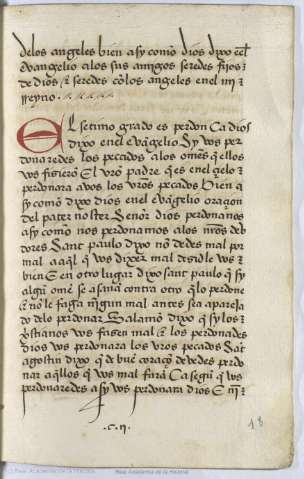 delos angeles bien asy como dios dixo enel
evangelio alos sus amigos seredes fijos
de dios & seredes cõlos angeles enel mi
rreyno
El setimo grado es perdon Ca dios
dixo enel evãgelio Sy vos per
donaredes los peccados alos omẽs q̃ ellos
vos fisierõ El vr̃o padre q̃ es enel çielo
perdonara avos los vr̃os pecados bien a
sy como dixo dios enel evãgelio oraçion
del pater noster Senõr dios perdonanos
asy como nos perdonamos alos nr̃os deb
dores Sant paulo dixo no dedes mal por
mal a aq̃l q̃ vos dixer mal desidle vos
bien E en otro lugar dixo sant paulo q̃ sy
algũ om̃e se asaña contra otro q̃ lo perdone
& no le faga nĩgun mal antes sea apareja
do delo perdonar Salamõ dixo q̃ sy los
xp̃stianos vos fasen mal & los perdonades
dios vos perdonara los vr̃os pecados Sãt
agostin dixo q̃ de buẽ coraçõ devedes perdo
nar aq̃llos q̃ vos mal farã Ca segũ q̃ vos
perdonaredes asy vos perdonara dios E
.c.ii.
18
Real Academia de la Historia